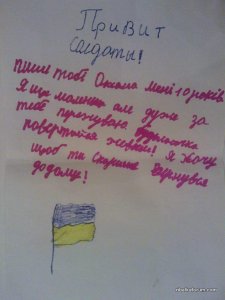 Привит
солдаты!
пише тобе Оксана мені 10 років
Я ще маленька але дуже за
тебе переживаю будьласка
повертайся живим! Я хочу
щоб ти скоріше вернувся
додому!